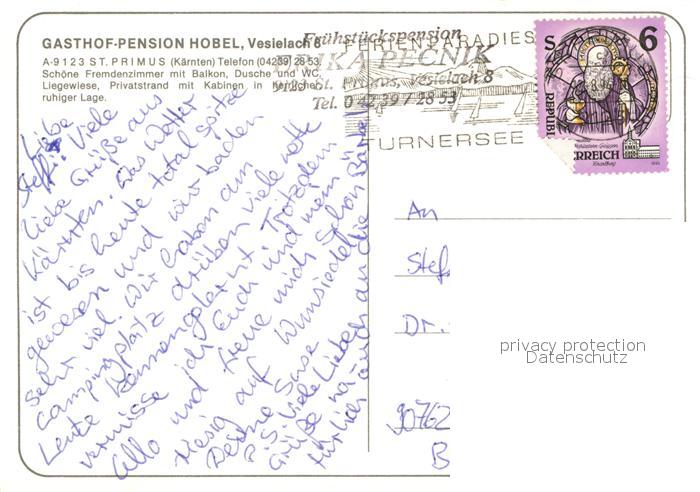 GASTHOF-PENSION HOBEL, Vesielach 8
A-9123 ST. PRIMUS (Kärnten) Telefon (04239) 28 53
Schöne Fremdenzimmer mit Balkon, Dusche und WC,
Liegewiese, Privatstrand mit Kabinen in
ruhiger Lage.
Frühstückspension
ERIKA PECNIK
9123 St. Primus, Vesielach 8
Tel. 0 42 39 / 28 53
FERIENPARADIES
TURNERSEE
S 6
REPUBLIK
ERREICH
Liebe
Steffi! Viele
liebe Grüße aus
Kärnten. Das Wetter
ist bis heute total spitze
gewesen und wir baden
sehr viel. Wir haben am
Campingplatz drüben viele nette
Leute kennengelernt. Trotzdem
vermisse ich Euch und mein
Allo und freue mich schon
riesig auf Wunsiedel.
Deine Suse
P.S. Viele liebe
Grüße na-
türlich auch an die
An
Stef
Dr.
90762
privacy protection
Datenschutz